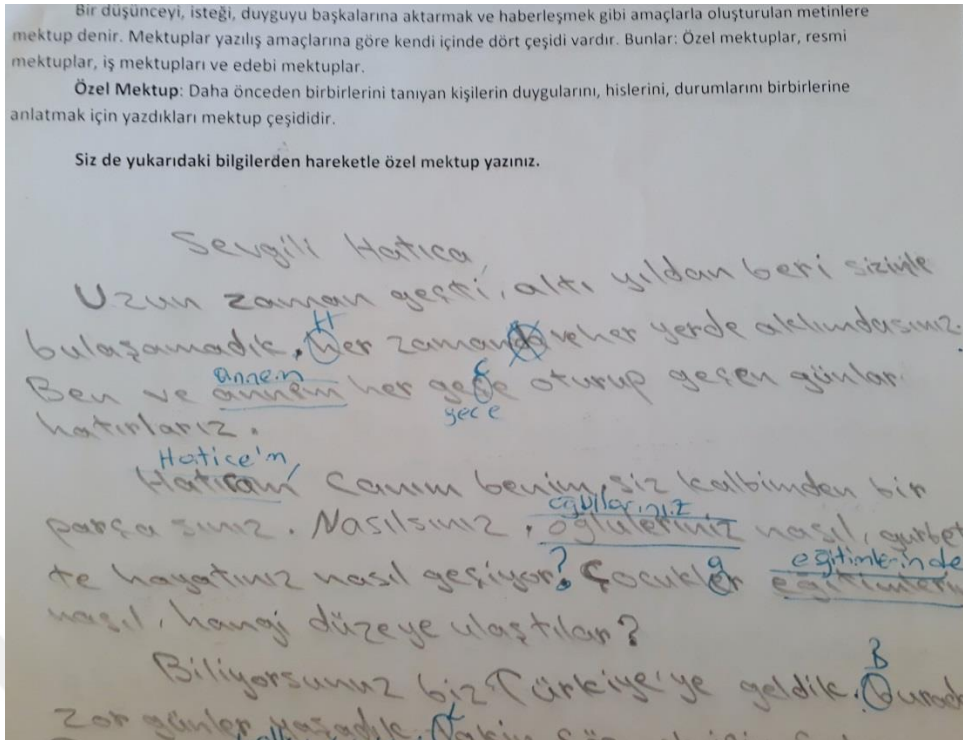 Bir düşünceyi, isteği, duyguyu başkalarına aktarmak ve haberleşmek gibi amaçlarla oluşturulan metinlere
mektup denir. Mektuplar yazılış amaçlarına göre kendi içinde dört çeşidi vardır. Bunlar: Özel mektuplar, resmi
mektuplar, iş mektupları ve edebi mektuplar.
Özel Mektup: Daha önceden birbirlerini tanıyan kişilerin duygularını, hislerini, durumlarını birbirlerine
anlatmak için yazdıkları mektup çeşididir.
Siz de yukarıdaki bilgilerden hareketle özel mektup yazınız.
Sevgili Hatica,
Uzun zaman geçti, altı yıldan beri sizinle
H
bulaşamadık. her zaman ve her yerde aklımdasınız.
annem c
Ben ve annem her geçe oturup geçen günlar
gece
hatırlarız.
Hatice'm,
Hatıcam canım benim, siz kalbimden bir
parça sınız. Nasılsınız, oğluleriniz nasıl, gurbet
? a eğitimlerinde
te hayatınız nasıl geçiyor? Çocukler
nasıl, hangi düzeye ulaştılar?
B
Biliyorsunuz biz Türkiye'ye geldik.
zor günler yaşadık.